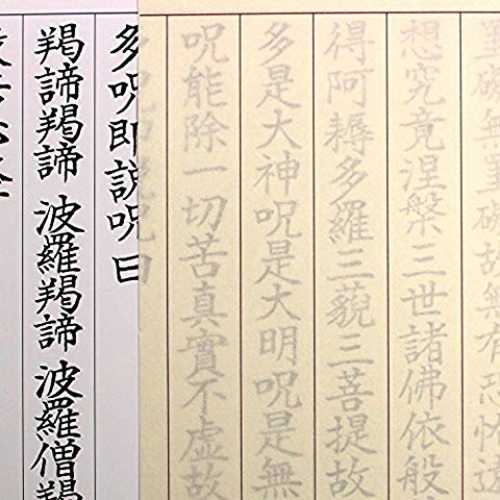 無罣礙故無有恐怖
想究竟涅槃三世諸佛依般
得阿耨多羅三藐三菩提故
多是大神呪是大明呪是無
呪能除一切苦真實不虛故
多呪即說呪曰
羯諦羯諦 波羅羯諦 波羅僧羯